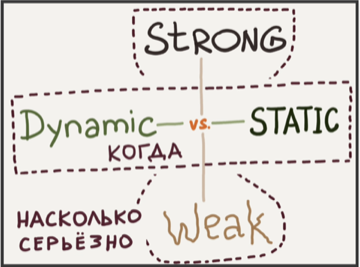 STRONG
Dynamic vs. STATIC
КОГДА
НАСКОЛЬКО
СЕРЬЁЗНО
Weak